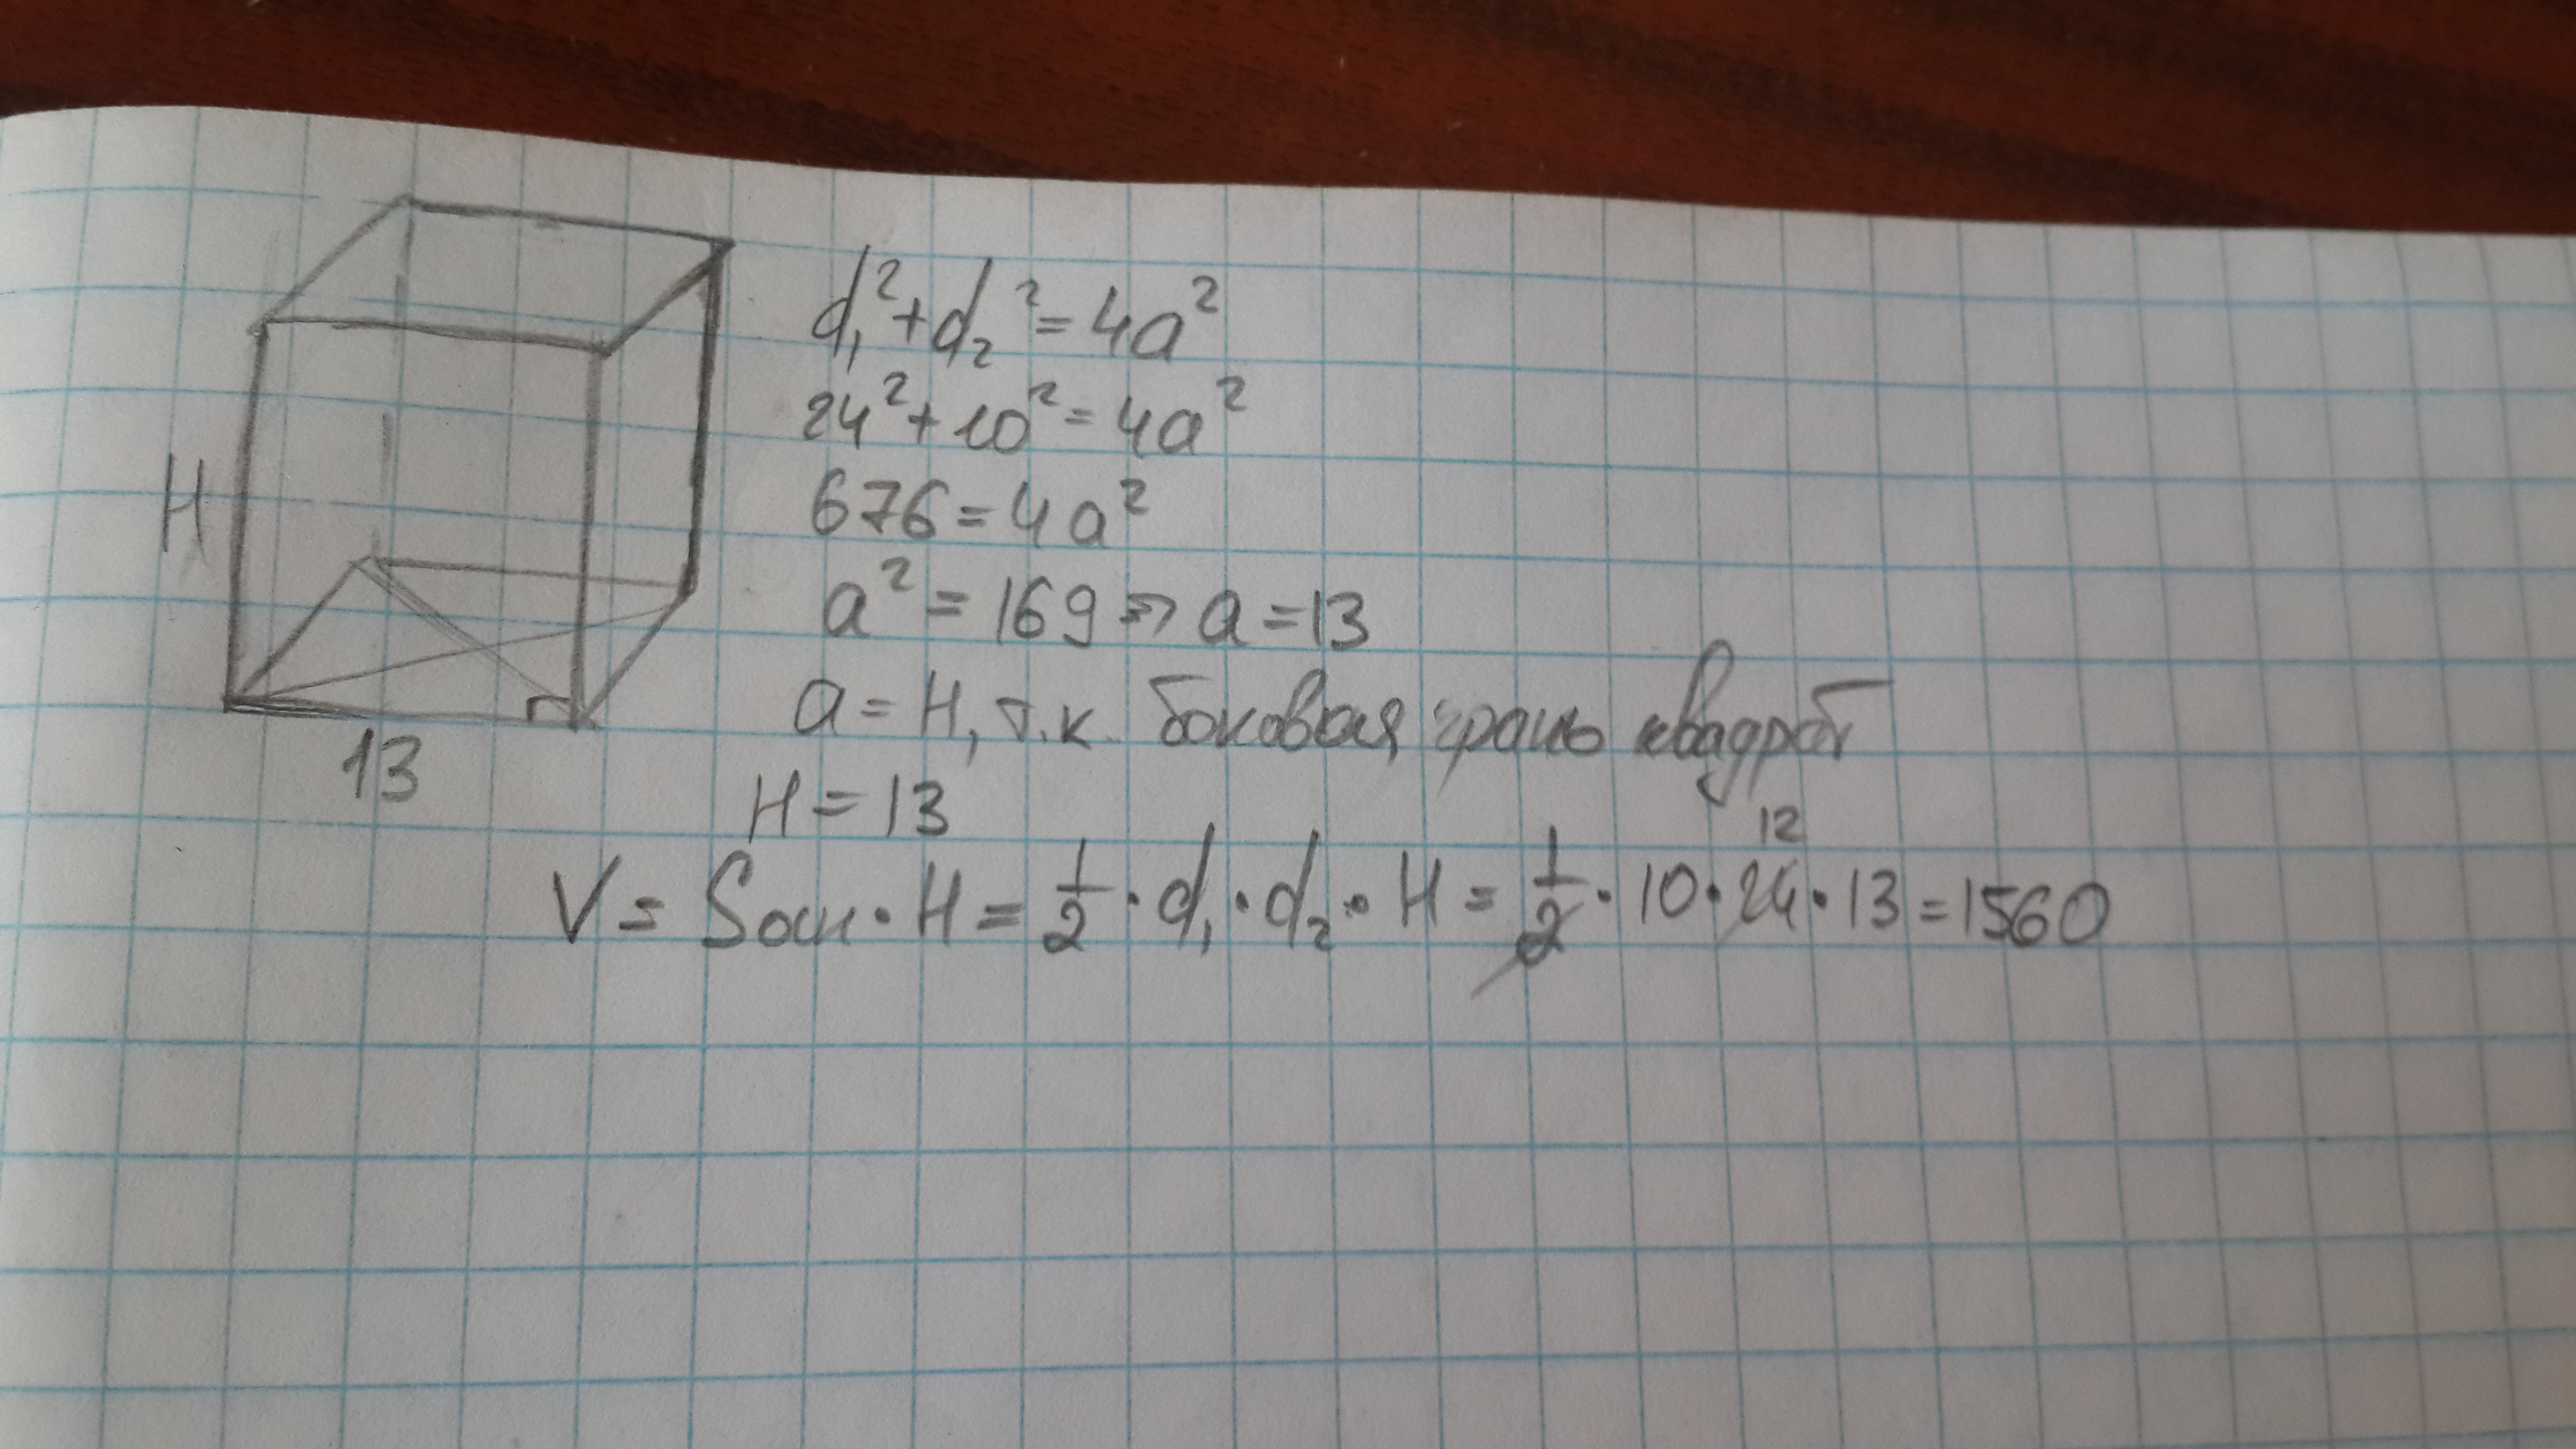 d₁² + d₂² = 4a²
24² + 10² = 4a²
676 = 4a²
a² = 169 => a = 13
H
a = H, т.к. боковая грань квадрат
13
H = 13
12
V = Sосн · H = 1/2 · d₁ · d₂ · H = 1/2 · 10 · 24 · 13 = 1560